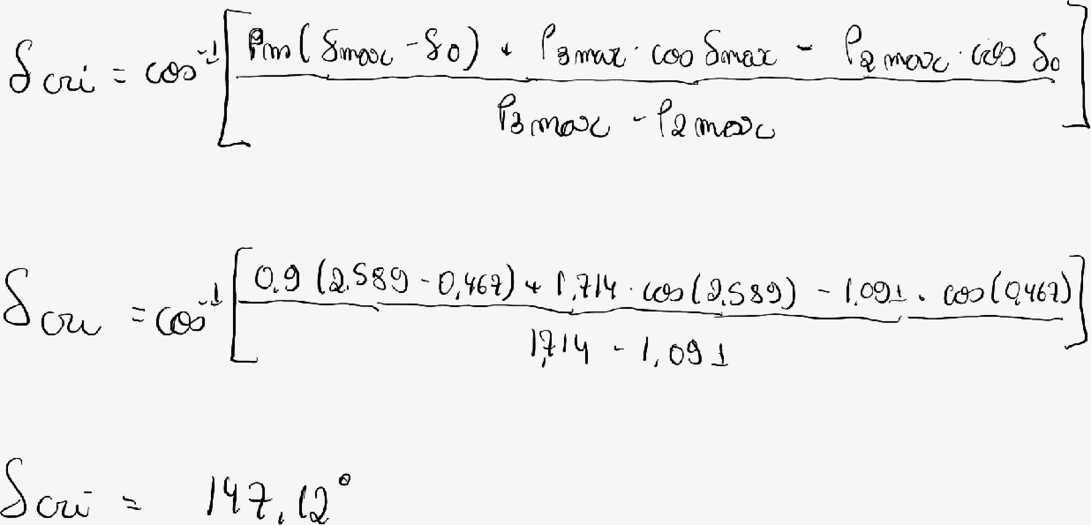 δcri = cos⁻¹ [ Pm(δmax - δ0) + P3max · cos δmax - P2max · cos δ0
P3max - P2max ]
δcri = cos⁻¹ [ 0,9 (2,589 - 0,467) + 1,714 · cos(2,589) - 1,091 · cos(0,467)
1,714 - 1,091 ]
δcri = 147,12°